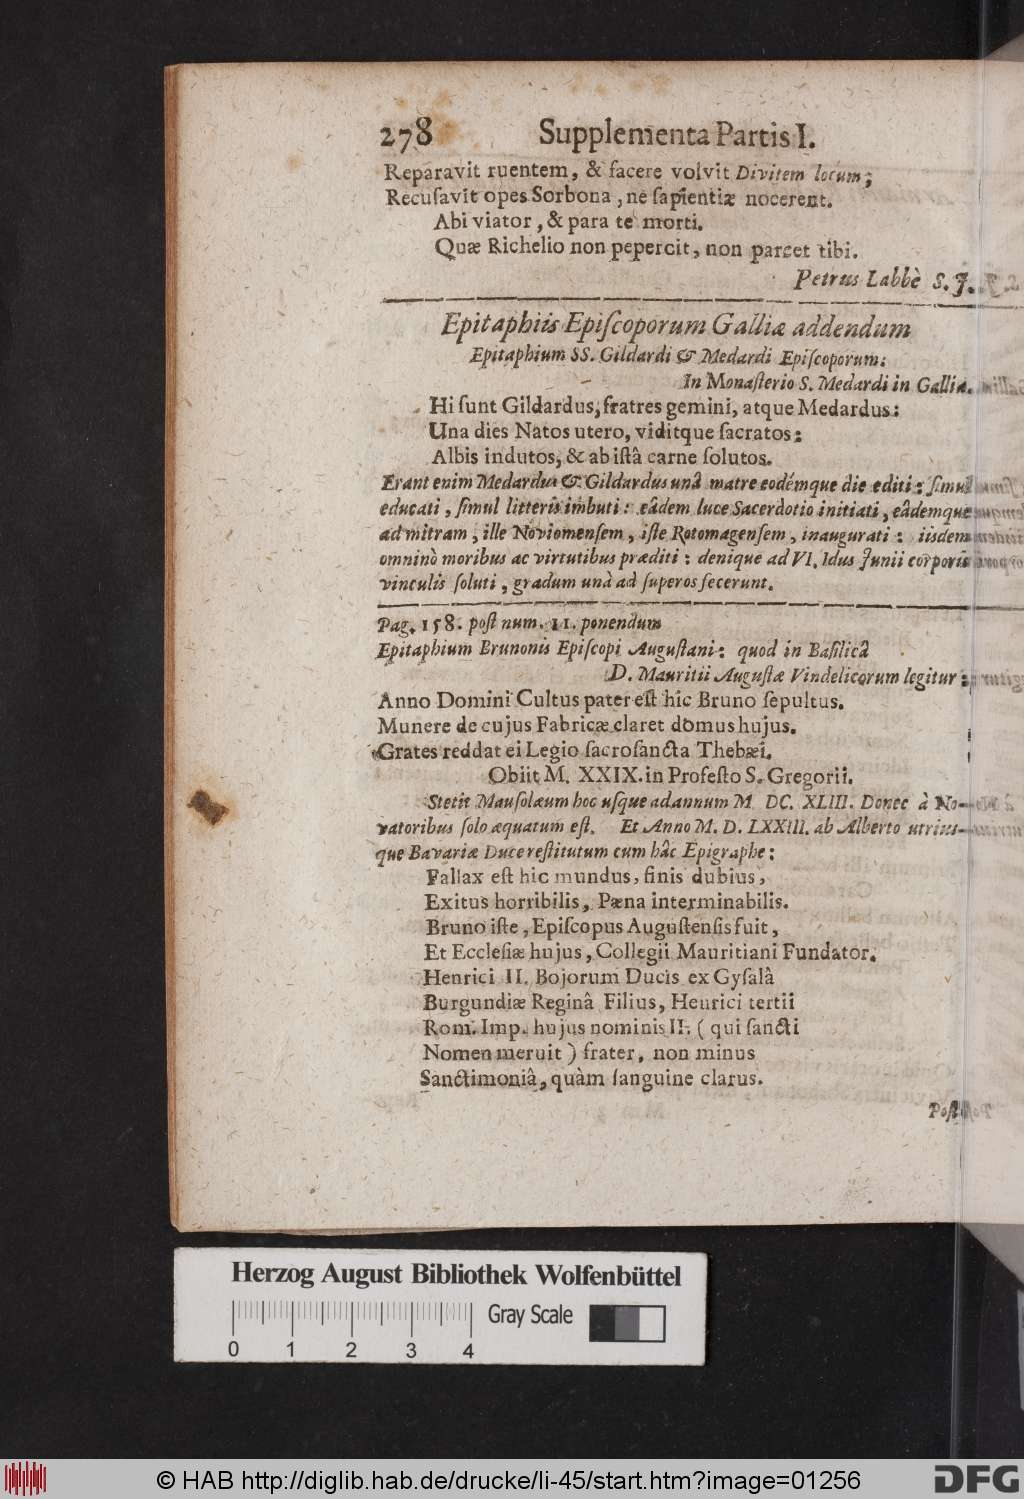 278 Supplementa Partis I.
Reparavit ruentem, & facere volvit Divitem locum;
Recuſavit opes Sorbona, ne ſapientiæ nocerent.
Abi viator, & para te morti.
Quæ Richelio non pepercit, non parcet tibi.
Petrus Labbè S. J.
Epitaphiis Epiſcoporum Galliæ addendum
Epitaphium SS. Gildardi & Medardi Epiſcoporum:
In Monaſterio S. Medardi in Gallia.
Hi ſunt Gildardus, fratres gemini, atque Medardus:
Una dies Natos utero, viditque ſacratos:
Albis indutos, & ab iſtâ carne ſolutos.
Erant enim Medardus & Gildardus unâ matre eodémque die editi: ſimul
educati, ſimul litteris imbuti: eâdem luce Sacerdotio initiati, eâdemque
ad mitram, ille Noviomenſem, iſte Rotomagenſem, inaugurati: iisdem
omninò moribus ac virtutibus præditi: denique ad VI. Idus Junii corporis
vinculis ſoluti, gradum unà ad ſuperos fecerunt.
Pag. 158. poſt num. 11. ponendum
Epitaphium Brunonis Epiſcopi Auguſtani: quod in Baſilicâ
D. Mauritii Auguſtæ Vindelicorum legitur:
Anno Domini Cultus pater eſt hic Bruno ſepultus.
Munere de cujus Fabricæ claret domus hujus.
Grates reddat ei Legio ſacroſancta Thebæi.
Obiit M. XXIX. in Profeſto S. Gregorii.
Stetit Mauſolæum hoc uſque ad annum M. DC. XLIII. Donec à No-
vatoribus ſolo æquatum eſt. Et Anno M. D. LXXIII. ab Alberto utrius-
que Bavariæ Duce reſtitutum cum hâc Epigraphe:
Fallax eſt hic mundus, finis dubius,
Exitus horribilis, Pæna interminabilis.
Bruno iſte, Epiſcopus Auguſtenſis fuit,
Et Eccleſiæ hujus, Collegii Mauritiani Fundator.
Henrici II. Bojorum Ducis ex Gyſalâ
Burgundiæ Reginâ Filius, Henrici tertii
Rom. Imp. hujus nominis II. (qui ſancti
Nomen meruit) frater, non minus
Sanctimoniâ, quàm ſanguine clarus.
Poſt
Herzog August Bibliothek Wolfenbüttel
Gray Scale
0 1 2 3 4
© HAB http://diglib.hab.de/drucke/li-45/start.htm?image=01256
DFG